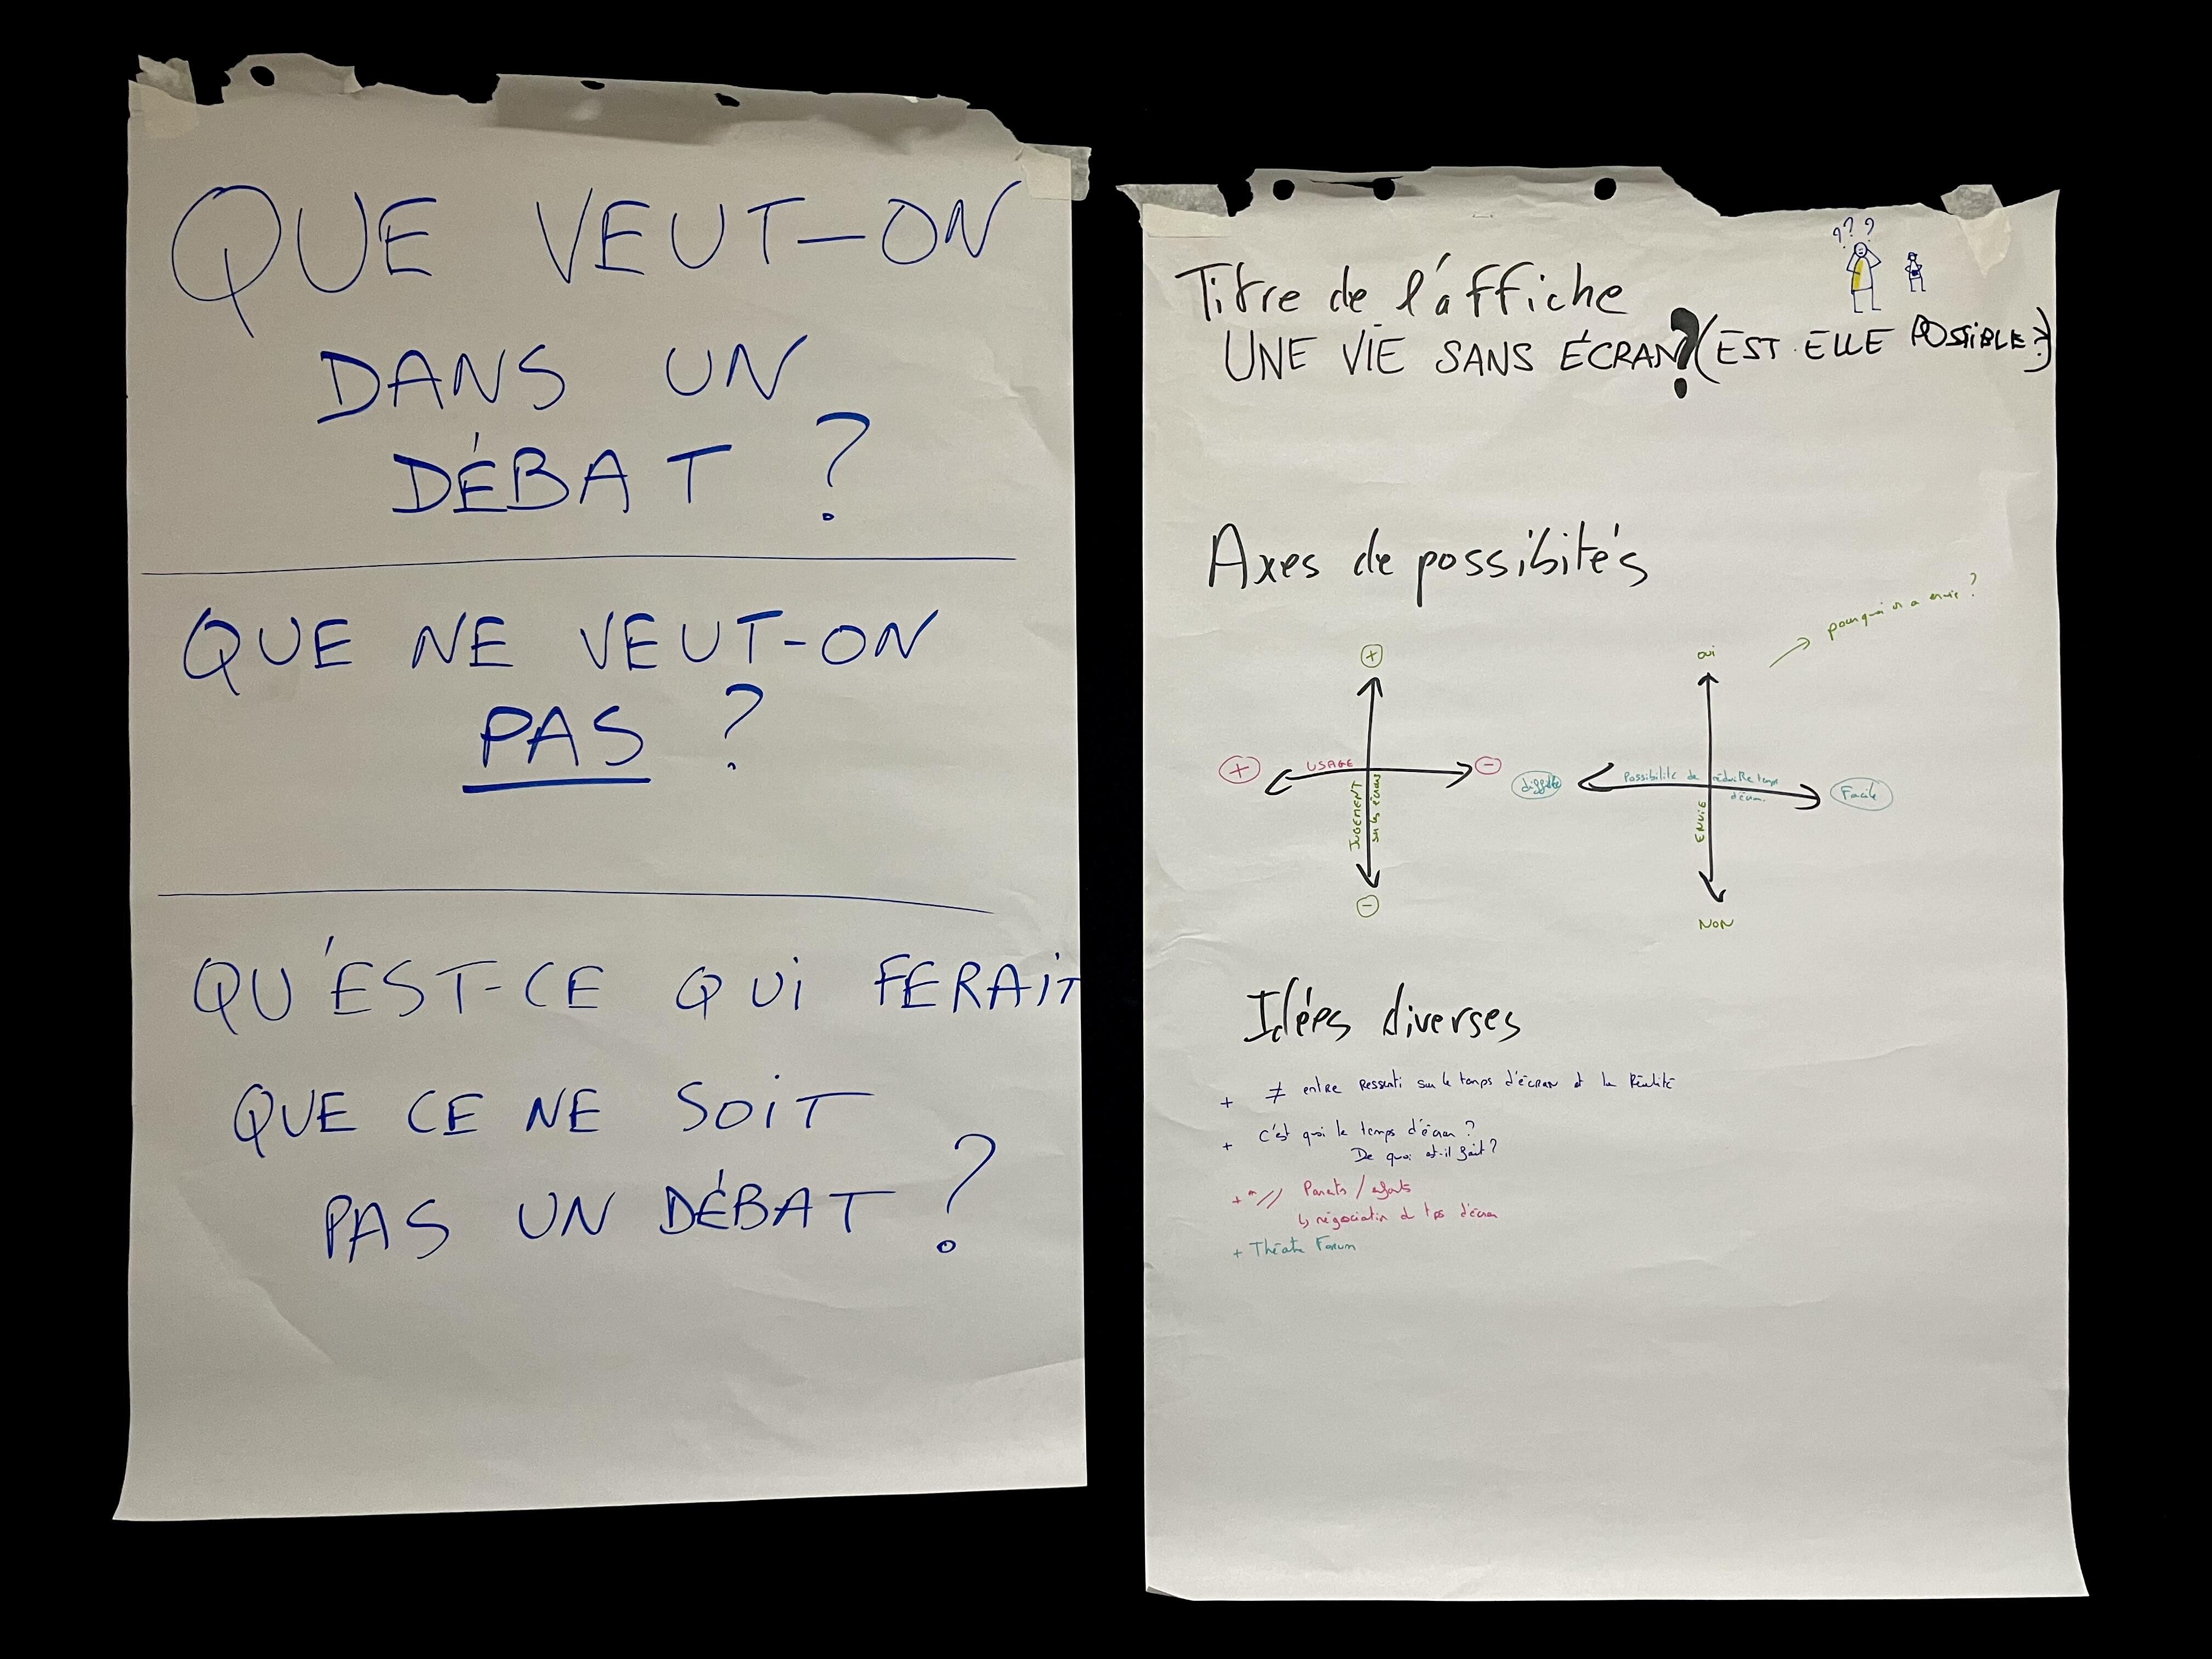 QUE VEUT-ON
DANS UN
DÉBAT ?
QUE NE VEUT-ON
PAS ?
QU'EST-CE QUI FERAIT
QUE CE NE SOIT
PAS UN DÉBAT ?
? ? ?
Titre de l'affiche
UNE VIE SANS ÉCRAN ? (EST ELLE POSSIBLE ?)
Axes de possibités
+
+ USAGE -
JUGEMENT
sur les écrans
-
pourquoi on a envie ?
oui
difficile Possibilité de réduire temps Facile
d'écran.
ENVIE
NON
Idées diverses
+ ≠ entre Ressenti sur le temps d'écran et la Réalité
+ C'est quoi le temps d'écran ?
De quoi est-il fait ?
+ // Parents / enfants
↳ négociation du tps d'écran
+ Théatre Forum